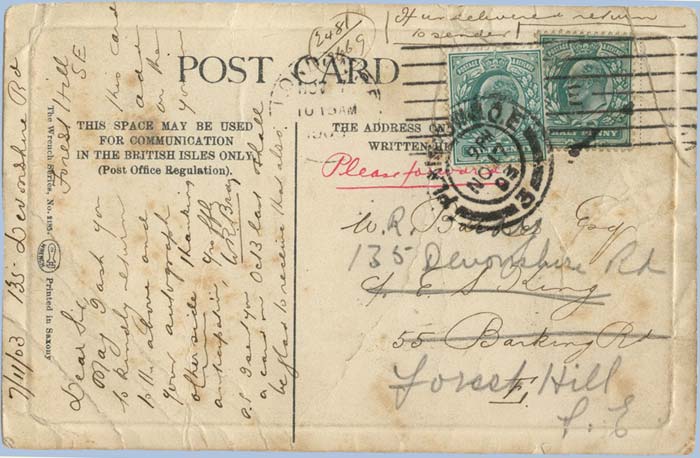 (If undelivered return
to sender)
2481
POST CARD
THIS SPACE MAY BE USED
FOR COMMUNICATION
IN THE BRITISH ISLES ONLY.
(Post Office Regulation).
THE ADDRESS ON
WRITTEN HE
HALF PENNY
NOV
10 15 AM
PLAISTOW
NO
03
Please forward
The Wrench Series, No. 2135.
WRENCH
Printed in Saxony
7/11/03 135 Devonshire Rd
Forest Hill
SE
Dear Sir
May I ask you
to kindly return
this card
to the above add
and
on the
your autograph
other side Thanking you
anticipation, Yrs ffly
P.S. I sent you
a card on Oct 13 last & shall
be glad to receive that also.
W. R. Esq
135 Devonshire Rd
J. E. S. King
55 Barking Rd
Forest Hill
E.
S. E